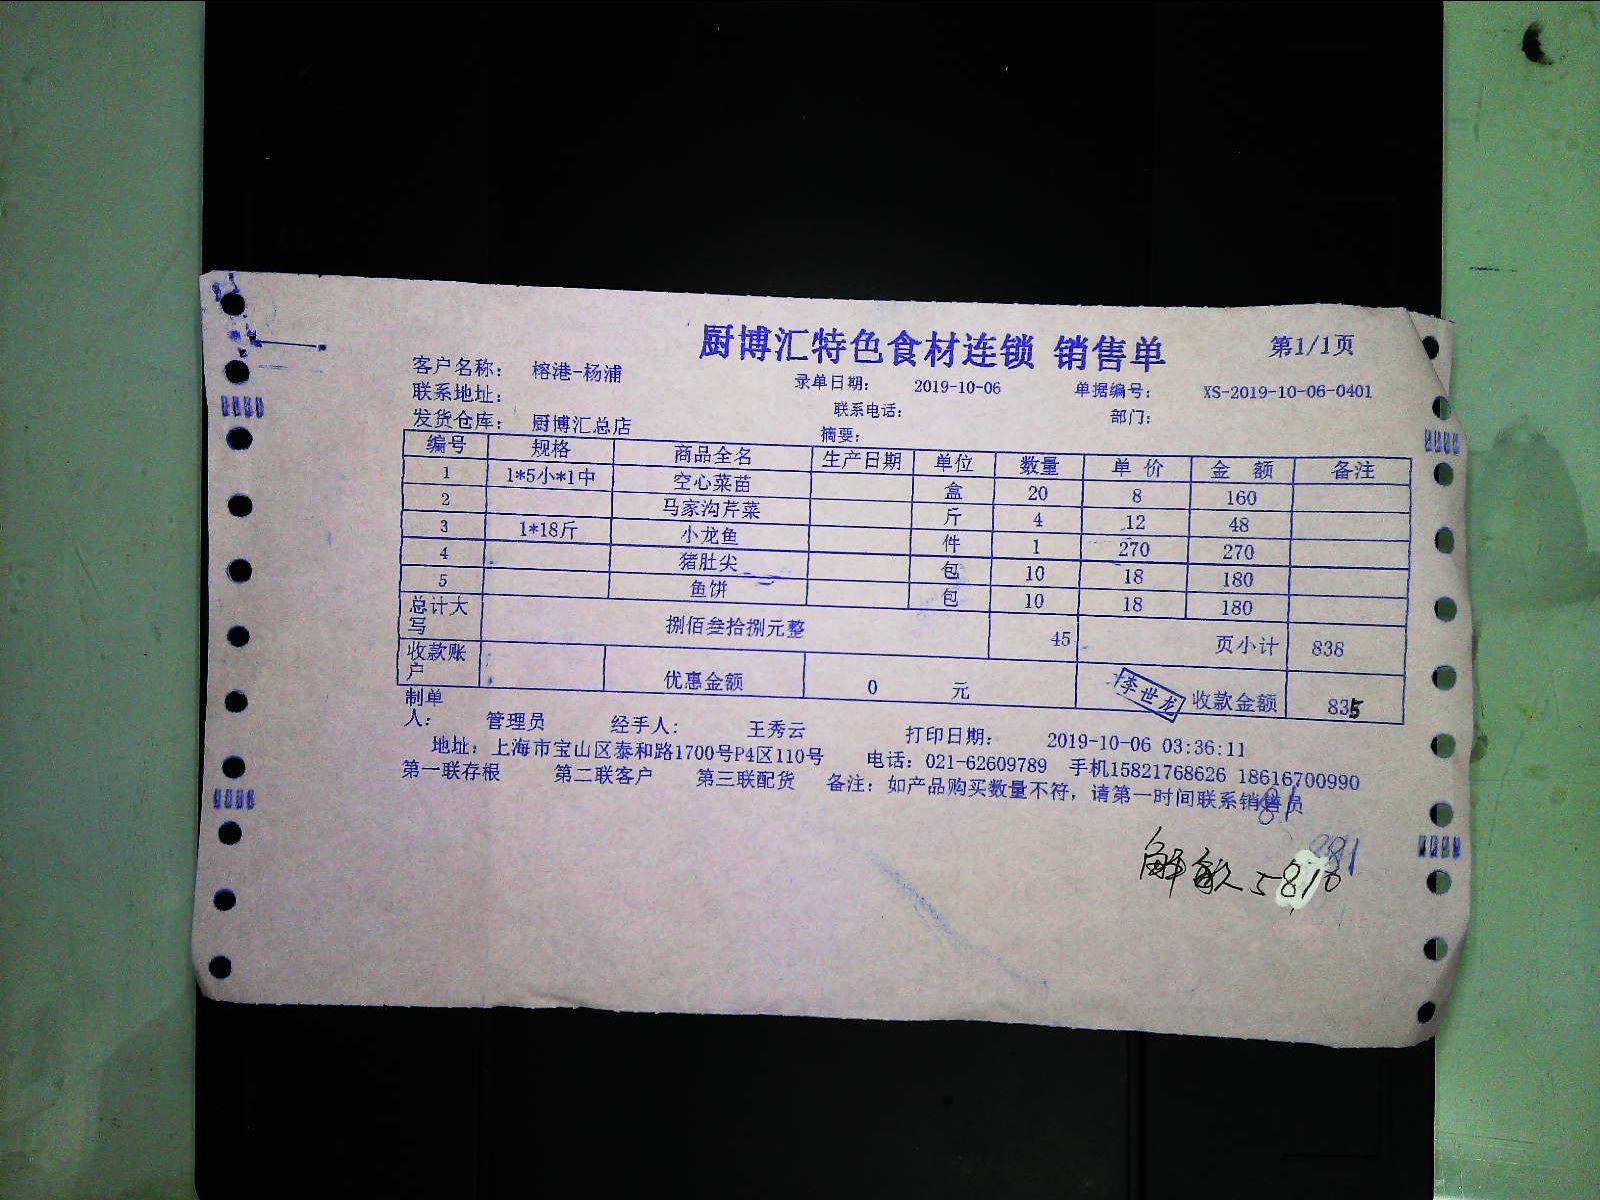 厨博汇特色食材连锁 销售单 第1/1页
客户名称： 榕港-杨浦 录单日期： 2019-10-06 单据编号： XS-2019-10-06-0401
联系地址： 联系电话： 部门：
发货仓库： 厨博汇总店 摘要：
编号 规格 商品全名 生产日期 单位 数量 单 价 金 额 备注
1 1*5小*1中 空心菜苗 盒 20 8 160
2 马家沟芹菜 斤 4 12 48
3 1*18斤 小龙鱼 件 1 270 270
4 猪肚尖 包 10 18 180
5 鱼饼 包 10 18 180
总计大写 捌佰叁拾捌元整 45 页小计 838
收款账户 优惠金额 0 元 李世龙 收款金额 835
制单人： 管理员 经手人： 王秀云 打印日期： 2019-10-06 03:36:11
地址：上海市宝山区泰和路1700号P4区110号 电话：021-62609789 手机15821768626 18616700990
第一联存根 第二联客户 第三联配货 备注：如产品购买数量不符，请第一时间联系销售员